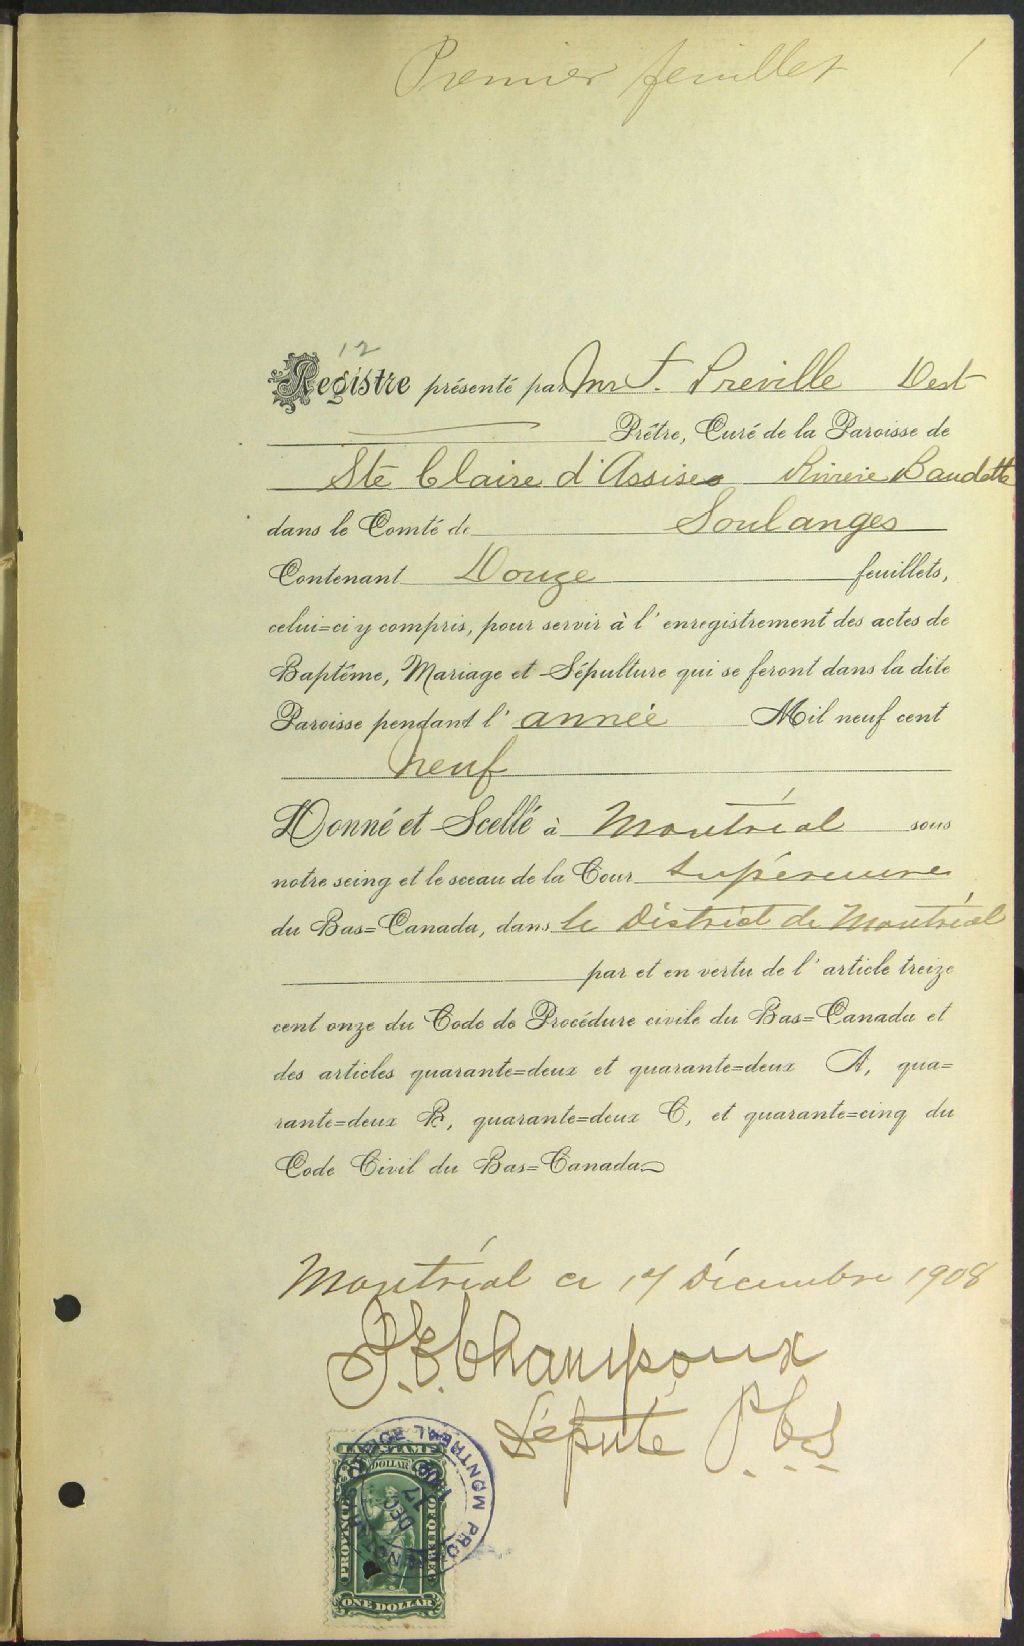 Premier feuillet 1
12
Registre présenté par Mr F. Preville Vest
Prêtre, Curé de la Paroisse de
Ste Claire d'Assise Rivière Baudette
dans le Comté de Soulanges
Contenant Douze feuillets,
celui=ci y compris, pour servir à l'enregistrement des actes de
Baptême, Mariage et Sépulture qui se feront dans la dite
Paroisse pendant l'année Mil neuf cent
neuf
Donné et Scellé à Montréal sous
notre seing et le sceau de la Cour Supérieure
du Bas=Canada, dans le District de Montréal
par et en vertu de l'article treize
cent onze du Code de Procédure civile du Bas=Canada et
des articles quarante=deux et quarante=deux A, qua=
rante=deux B, quarante=deux C, et quarante=cinq du
Code Civil du Bas=Canada.
Montréal ce 17 Décembre 1908
Champoux
Député P.C.S
LAW STAMP
DOLLAR
PROVINCE OF QUEBEC
MONTREAL
DEC 17 1908
ONE DOLLAR